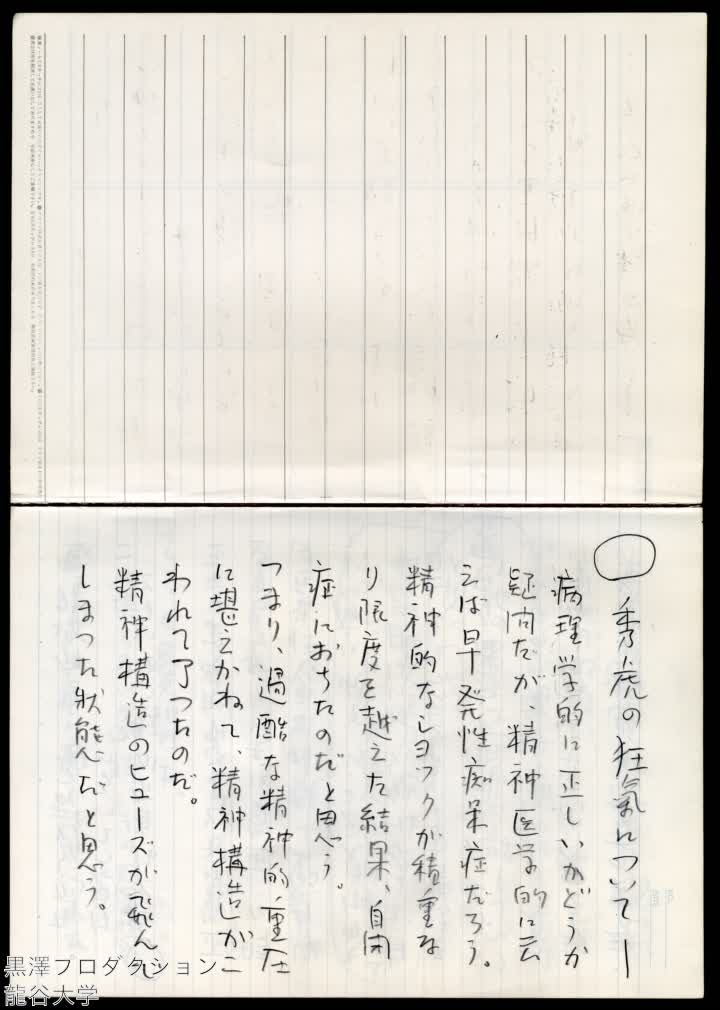 秀虎の狂氣について―
病理学的に正しいかどうか
疑問だが、精神医学的に云
えば早発性痴呆症だろう。
精神的なショックが積重な
り限度を越えた結果、自閉
症におちたのだと思う。
つまり、過酷な精神的重圧
に堪えかねて、精神構造がこ
われて了ったのだ。
精神構造のヒューズが飛んで
しまった状態だと思う。
黒澤プロダクション
龍谷大学